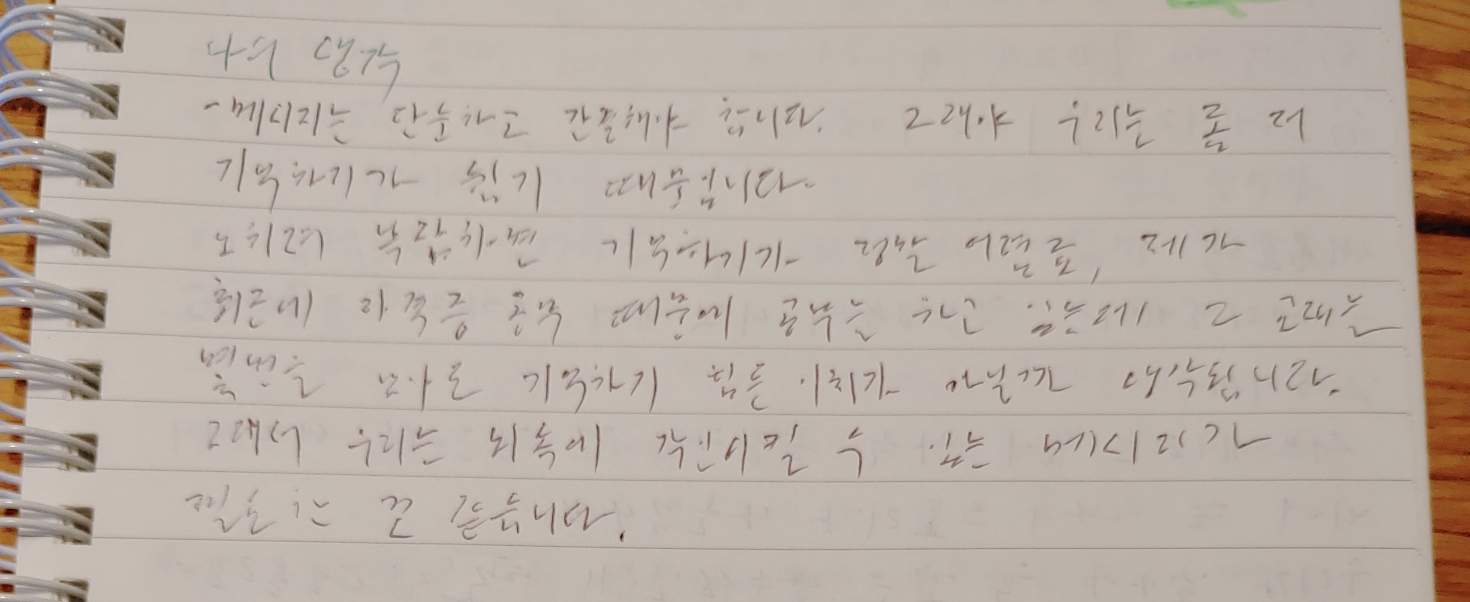 나의 생각
-메시지는 단순하고 간결해야 합니다. 그래야 우리는 좀 더
기억하기가 쉽기 때문입니다.
오히려 복잡하면 기억하기가 정말 어렵죠, 제가
최근에 자격증 공부 때문에 공부는 하고 있는데 그
몇번을 보아도 기억하기 힘든 이치가 아닐까 생각됩니다.
그래서 우리는 뇌속에 각인시킬 수 있는 메시지가
필요한 것 같습니다.